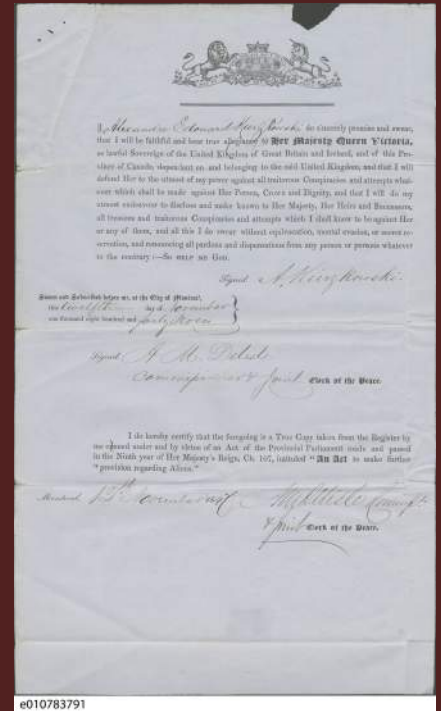 I, Alexandre Edouard Kierzkowski do sincerely promise and swear,
that I will be faithful and bear true allegiance to Her Majesty Queen Victoria,
as lawful Sovereign of the United Kingdom of Great Britain and Ireland, and of this Pro-
vince of Canada, dependant on and belonging to the said United Kingdom, and that I will
defend Her to the utmost of my power against all traitorous Conspiracies and attempts what-
ever which shall be made against Her Person, Crown and Dignity, and that I will do my
utmost endeavor to disclose and make known to Her Majesty, Her Heirs and Successors,
all treasons and traitorous Conspiracies and attempts which I shall know to be against Her
or any of them, and all this I do swear without equivocation, mental evasion, or secret re-
servation, and renouncing all pardons and dispensations from any person or persons whatever
to the contrary :—So HELP ME GOD.
Signed A. Kierzkowski.
Sworn and Subscribed before me, at the City of Montreal,
this twelfth day of November
one thousand eight hundred and forty seven
Signed A. M. Delisle
Commissioner & Joint Clerk of the Peace.
I do hereby certify that the foregoing is a True Copy taken from the Register by
me opened under and by virtue of an Act of the Provincial Parliament made and passed
in the Ninth year of Her Majesty's Reign, Ch. 107, intituled "An Act to make further
"provision regarding Aliens."
Montreal November Delisle
& Joint Clerk of the Peace.
e010783791